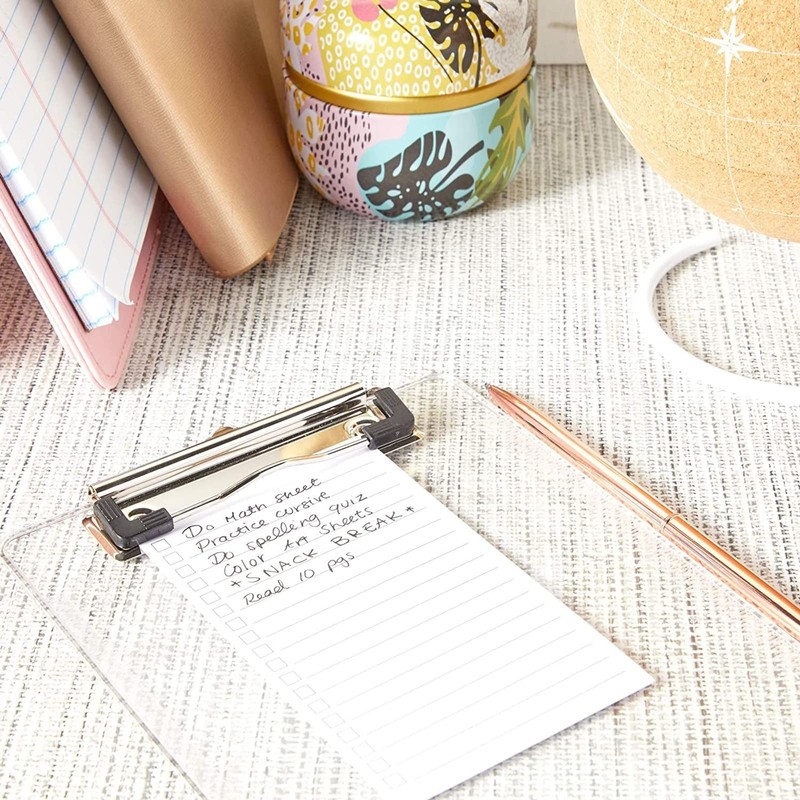 Do Math sheet
Practice cursive
Do spelling quiz
Color Art Sheets
+SNACK BREAK+
Read 10 pgs